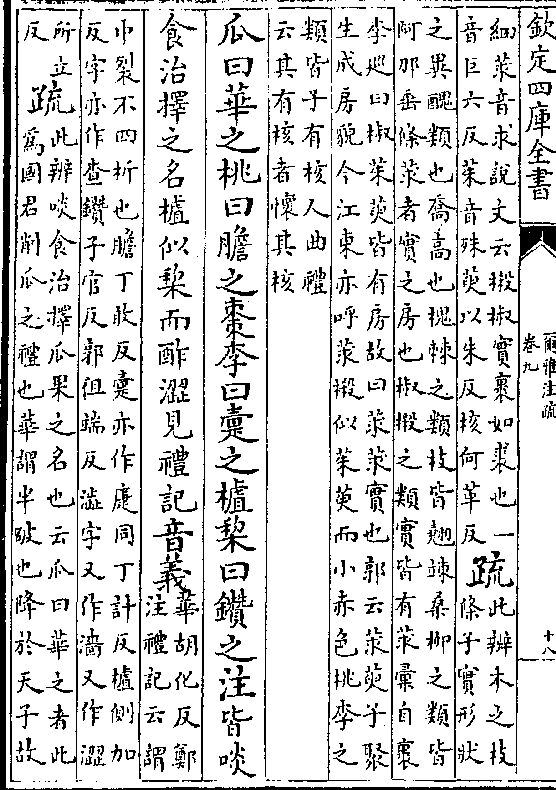 欽定四庫全書
爾雅注疏
卷九
十八
細莍音求説文云樧椒實裹如裘也一
音巨六反茱音殊萸以朱反核何革反
疏此辨木之枝
條子實形狀
之異醜類也喬高也槐棘之類枝皆翹竦桑柳之類皆
阿那垂條莍者實之房也椒樧之類實皆有莍彙自裹
李廵曰椒茱萸皆有房故曰莍莍實也郭云莍萸子聚
生成房貌今江東亦呼莍樧似茱萸而小赤色桃李之
類皆子有核人曲禮
云其有核者懷其核
瓜曰華之桃曰膽之棗李曰疐之樝棃曰鑽之注皆啖
食治擇之名樝似棃而酢澀見禮記音義華胡化反鄭
注禮記云謂
巾裂不四析也膽丁敢反疐亦作㢟同丁計反樝側加
反字亦作査鑽子官反郭徂端反澁字又作濇又作澀
所立
反
疏此辨啖食治擇瓜果之名也云瓜曰華之者此
爲國君削瓜之禮也華謂半破也降於天子故